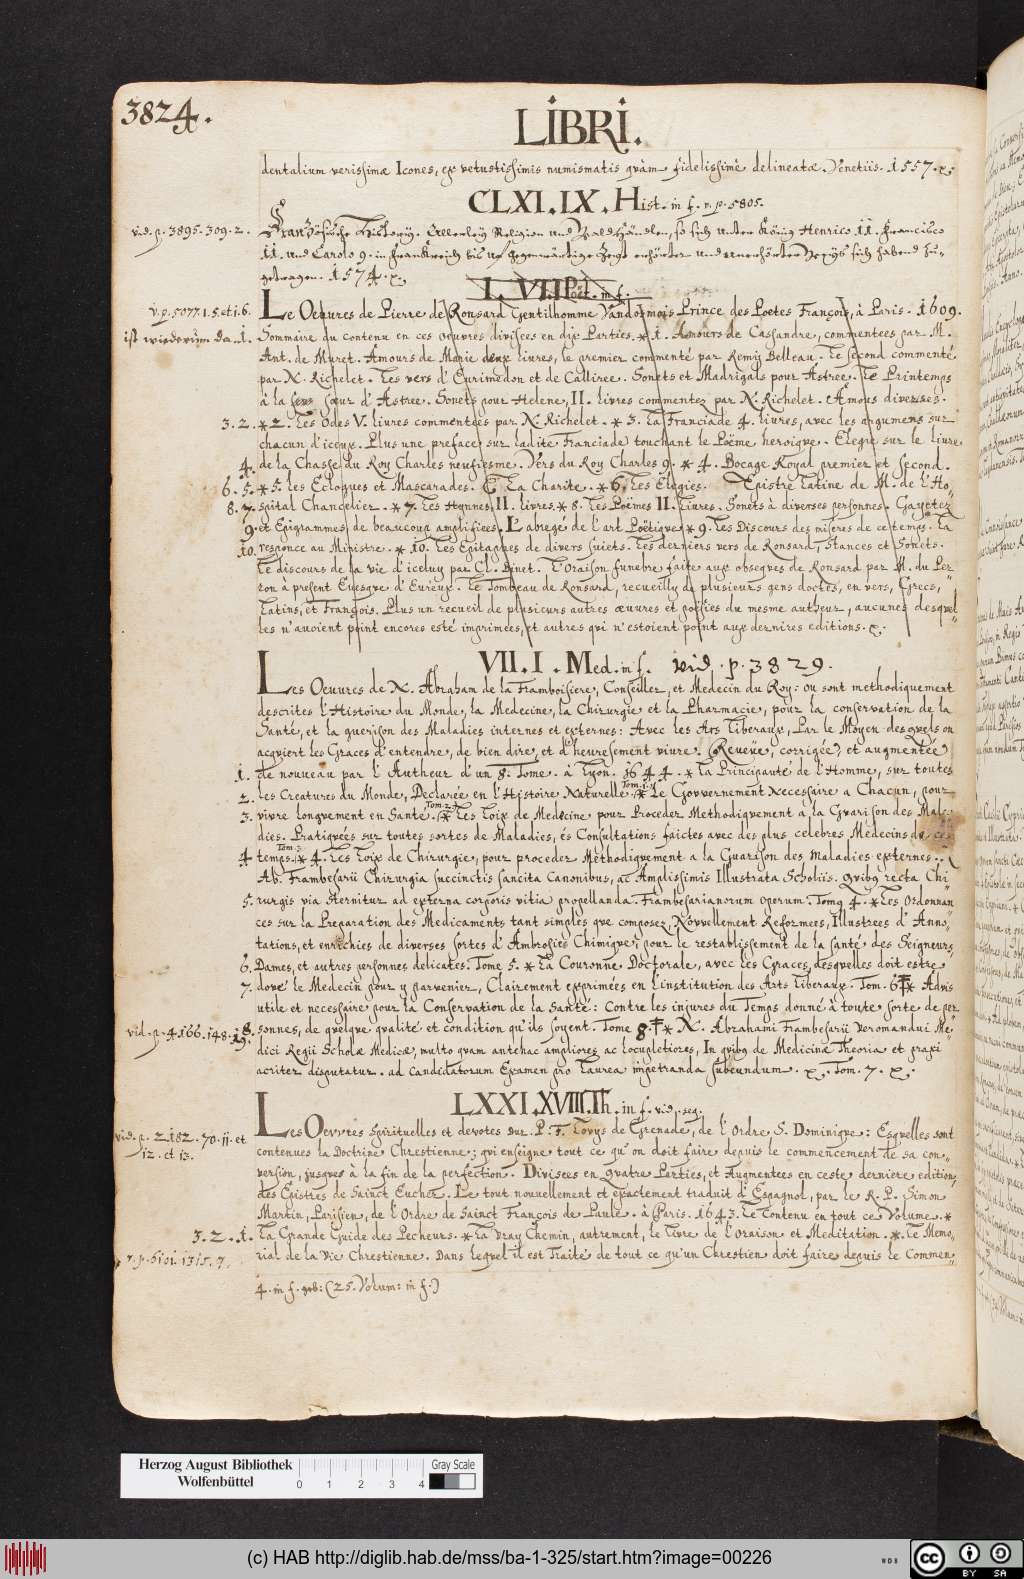 3824.
LIBRI.
dentalium verissimæ Icones, ex vetustissimis numismatis quàm fidelissimè delineatæ. Venetiis. 1557. x.
CLXI. IX. Hist. in f. v. p. 5805.
vid. p. 3895. 309. 2. Französische Historÿ. Allerleÿ Religion und Handlen, so sich unter König Henrico II. Francisco
II. und Carolo 9. in Franckreich bis uf gegenwärtige Zeyt sich habend zu-
getragen. 1574. x.
I. VII. Poët. in f.
v. p. 5077. 1. 5. et 1. 6. Le Oeuures de Pierre de Ronsard Gentilhomme Vandosmois Prince des Poetes François, à Paris. 1609.
ist wiederum da. 1. Sommaire du contenu en ces oeuvres divisees en dix Parties. * 1. Amours de Cassandre, commentees par M.
Ant. de Muret. Amours de Marie deux liures, le premier commenté par Remy Belleau. Le second commenté
par N. Richelet. Les vers d'Eurimedon et de Calliree. Sonets et Madrigals pour Astree. Le Printemps
à la Soeur d'Astree. Sonets pour Helene, II. livres commentez par N. Richelet. Amous diverses.
3. 2. * 2. Les Odes V. liures commentees par N. Richelet. * 3. La Franciade 4. liures, avec les argumens sur
chacun d'iceux. Plus une preface sur ladite Franciade touchant le Poëme heroique. Elegie sur le liure
4. de la Chasse du Roy Charles neufiesme. Vers du Roy Charles 9. * 4. Bocage Royal premier et second.
6. 5. * 5. les Eclogues et Mascarades. La Charite. * 6. Les Elegies. Epistre Latine de M. de l'Ho-
8. 7. spital Chancelier. * 7. Les Hymnes II. livres. * 8. Les Poëmes II. Liures. Sonets à diverses personnes. Gayetez
9. et Epigrammes, de beaucoup amplifiees. L'abregé de l'art Poëtique * 9. Les Discours des miseres de ce temps. La
10. responce au Ministre. * 10. Les Epitaphes de divers suiets. Les derniers vers de Ronsard, Stances et Sonets.
Le discours de la vie d'iceluy par Cl. Binet. L'Oraison funebre faite aux obseques de Ronsard par M. du Per-
ron à present Euesque d'Eureux. Le Tombeau de Ronsard, recueilly de plusieurs gens doctes, en vers, Grecs,
Latins, et François. Plus un recueil de plusieurs autres oeuures et poësies du mesme autheur, aucunes desquel-
les n'auoient point encores esté imprimees, et autres qui n'estoient point aux dernires editions. x.
VII. I. Med. in f. vid. p. 3829.
Les Oeuures de N. Abraham de la Framboisiere, Conseiller, et Medecin du Roy: ou sont methodiquement
descrites l'Histoire du Monde, la Medecine, la Chirurgie et la Pharmacie, pour la conservation de la
Santé, et la guerison des Maladies internes et externes: Avec les Ars Liberaux, Par le Moyen desquels on
acquiert les Graces d'entendre, de bien dire, et d'heuresement viure. Reueuë, corrigée, et augmentée
1. de nouveau par l'Autheur d'un 8. Tome. à Lyon. 1644. * La Principauté de l'Homme, sur toutes
2. les Creatures du Monde, Declarée en l'Histoire Naturelle. Tom. 1. * Le Gouvernement Necessaire a Chacun, pour
3. vivre longuement en Santé. Tom. 2. * Les Loix de Medecine pour Proceder Methodiquement a la Guarison des Mala-
dies. Pratiquées sur toutes sortes de Maladies, és Consultations faictes avec des plus celebres Medecins de ce
4. temps. Tom. 3. * 4. Les Loix de Chirurgie, pour proceder Methodiquement a la Guarison des Maladies externes.
Ab. Frambesarii Chirurgia succinctis sancita Canonibus, ac Amplissimis Illustrata Scholiis. quibq recta Chi-
5. rurgis via sternitur ad externa corporis vitia propellanda. Frambesarianorum operum. Tomq 4. * Les Ordonnan-
ces sur la Preparation des Medicaments tant simples que composez, Nouvellement Reformees, Illustrees d'Anno-
tations, et enrichies de diverses sortes d'Ambrosies Chimique, pour le restablissement de la santé des Seigneurs,
6. Dames, et autres personnes delicates. Tome 5. * La Couronne Doctorale, avec les Graces, desquelles doit estre
7. doué le Medecin pour y parvenier, Clairement exprimées en l'institution des Arts Liberaux. Tom. 6. * Advis
utile et necessaire pour la Conservation de la Santé: Contre les injures du Temps donné à toute sorte de per-
vid. p. 4166. 148. 19. 8. sonnes, de quelque qualité et condition qu'ils soyent. Tome 8. * N. Abrahami Frambesarii Veromandui Me-
dici Regii Scholæ Medicæ, multo quam antehac ampliores ac locupletiores, In quibq de Medicinæ Theoria et praxi
acriter disputatur. ad Candidatorum Examen pro Laurea impetranda subeundum. x. Tom. 7. x.
LXXI. XVIII. Th. in f. vid. seq.
vid. p. 2182. 70. 11. et 12. et 13. Les Oeuvres Spirituelles et devotes dur. P. F. Lovys de Grenade, de l'Ordre S. Dominique: Esquelles sont
contenues la Doctrine Chrestienne; qui enseigne tout ce qu'on doit faire depuis le commencement de sa con-
version, jusques à la fin de la perfection. Divisees en quatre Parties, et Augmentees en ceste derniere edition,
des Epistres de Sainct Eucher. Le tout nouuellement et exactement traduit d'Espagnol, par le R. P. Simon
Martin, Parisien, de l'Ordre de Sainct François de Paule. à Paris. 1643. Le Contenu en tout ce Volume. *
3. 2. 1. La Grande Guide des Pecheurs. * La Vray Chemin, autrement, le Livre de l'Oraison et Meditation. * Le Memo-
v. p. 6101. 1315. 7. rial de la Vie Chrestienne. Dans lequel il est Traité de tout ce qu'un Chrestien doit faire depuis le Commen-
4. in f. geb: (25. Volum: in f.)
Herzog August Bibliothek
Wolfenbüttel
0 1 2 3 4
Gray Scale
(c) HAB http://diglib.hab.de/mss/ba-1-325/start.htm?image=00226
WDB
cc BY SA